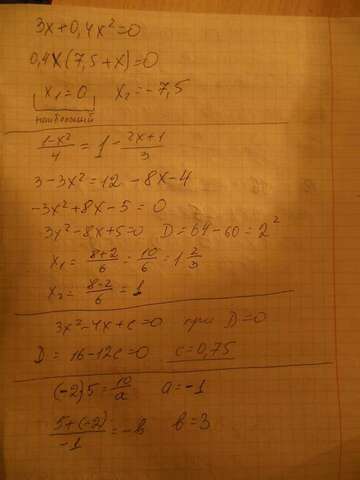 3x+0,4x²=0
0,4x(7,5+x)=0
x₁=0 x₂=-7,5
наибольший
(1-x²)/4 = 1 - (2x+1)/3
3-3x²=12-8x-4
-3x²+8x-5=0
3x²-8x+5=0 D=64-60=2²
x₁= (8+2)/6 = 10/6 = 1 2/3
x₂= (8-2)/6 = 1
3x²-4x+c=0 при D=0
D = 16-12c=0 c=0,75
(-2)5= 10/a a=-1
(5+(-2))/-1 = -b b=3